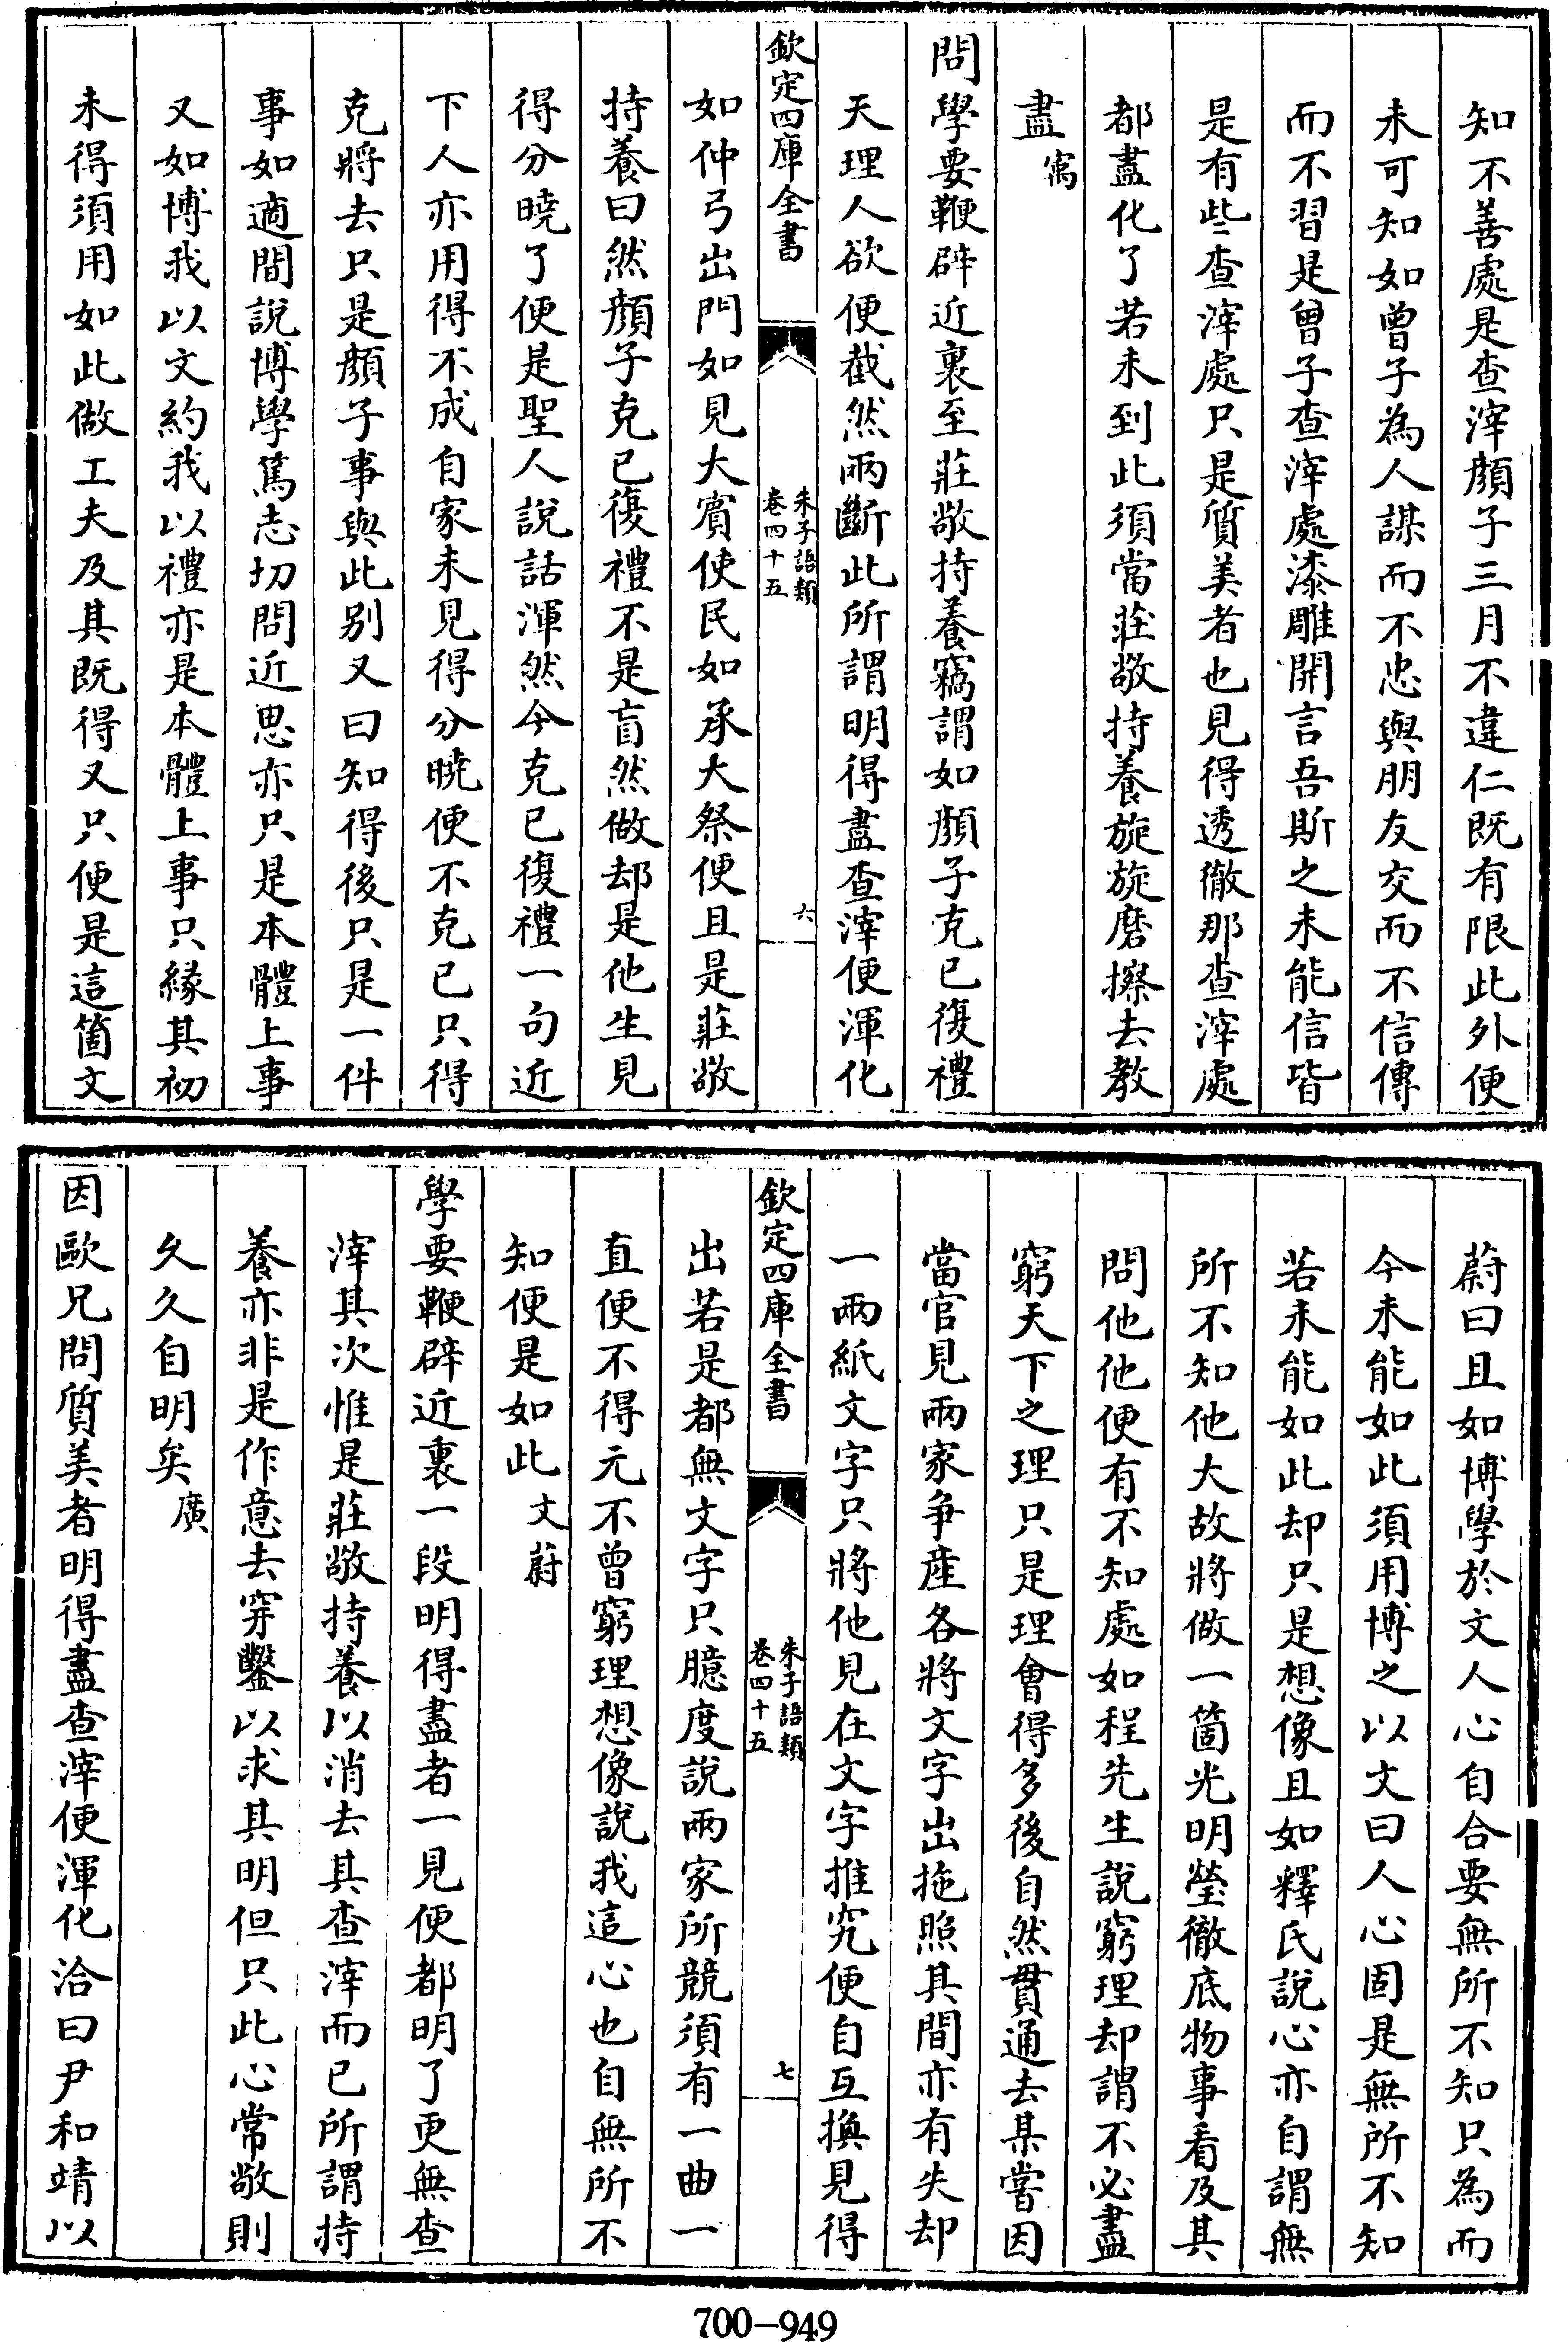 知不善處是查滓顔子三月不違仁既有限此外便
未可知如曾子為人謀而不忠與朋友交而不信傳
而不習是曾子查滓處漆雕開言吾斯之未能信皆
是有些查滓處只是質美者也見得透徹那查滓處
都盡化了若未到此須當莊敬持養旋旋磨擦去教
盡㝢
問學要鞭辟近裏至莊敬持養竊謂如顔子克已復禮
天理人欲便截然兩斷此所謂明得盡查滓便渾化
欽定四庫全書
朱子語類
卷四十五
六
如仲弓出門如見大賓使民如承大祭便且是莊敬
持養曰然顔子克已復禮不是盲然做却是他生見
得分曉了便是聖人說話渾然今克已復禮一句近
下人亦用得不成自家未見得分曉便不克已只得
克將去只是顔子事與此别又曰知得後只是一件
事如適間說博學篤志切問近思亦只是本體上事
又如博我以文約我以禮亦是本體上事只緣其初
未得須用如此做工夫及其既得又只便是這箇文
蔚曰且如博學於文人心自合要無所不知只為而
今未能如此須用博之以文曰人心固是無所不知
若未能如此却只是想像且如釋氏說心亦自謂無
所不知他大故將做一箇光明瑩徹底物事看及其
問他他便有不知處如程先生說窮理却謂不必盡
窮天下之理只是理會得多後自然貫通去某嘗因
當官見兩家争產各將文字出拖照其間亦有失却
一兩紙文字只將他見在文字推究便自互換見得
欽定四庫全書
朱子語類
卷四十五
七
出若是都無文字只臆度說兩家所競須有一曲一
直便不得元不曾窮理想像說我這心也自無所不
知便是如此文蔚
學要鞭辟近裏一段明得盡者一見便都明了更無查
滓其次惟是莊敬持養以消去其查滓而已所謂持
養亦非是作意去穿鑿以求其明但只此心常敬則
久久自明矣廣
因歐兄問質美者明得盡查滓便渾化洽曰尹和靖以
700-949